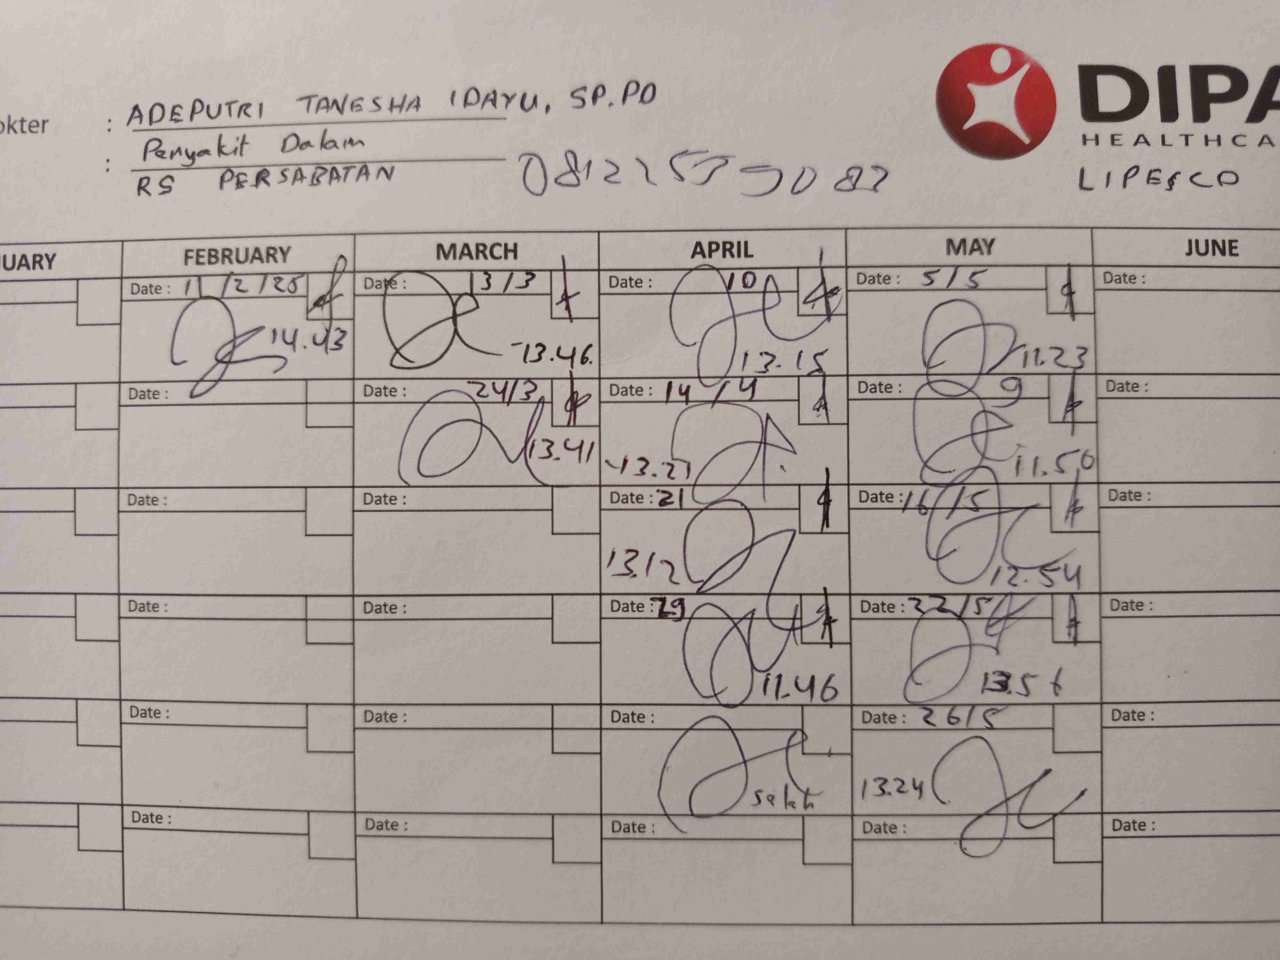 okter : ADEPUTRI TANESHA IDAYU, SP.PD
: Penyakit Dalam
RS PERSABATAN
DIPA
HEALTHCA
LIPESCO
UARY FEBRUARY MARCH APRIL MAY JUNE
Date : 11/2/25 Date : 13/3 Date : 10 Date : 5/5 Date :
14.43 13.46 13.15 11.23
Date : Date : 24/3 Date : 14/4 Date : 9 Date :
13.41 13.21 11.50
Date : Date : Date : 21 Date : 16/5 Date :
13.12 12.54
Date : Date : Date : 29 Date : 22/5 Date :
11.46 13.56
Date : Date : Date : Date : 26/5 Date :
13.24
Date : Date : Date : Date : Date :